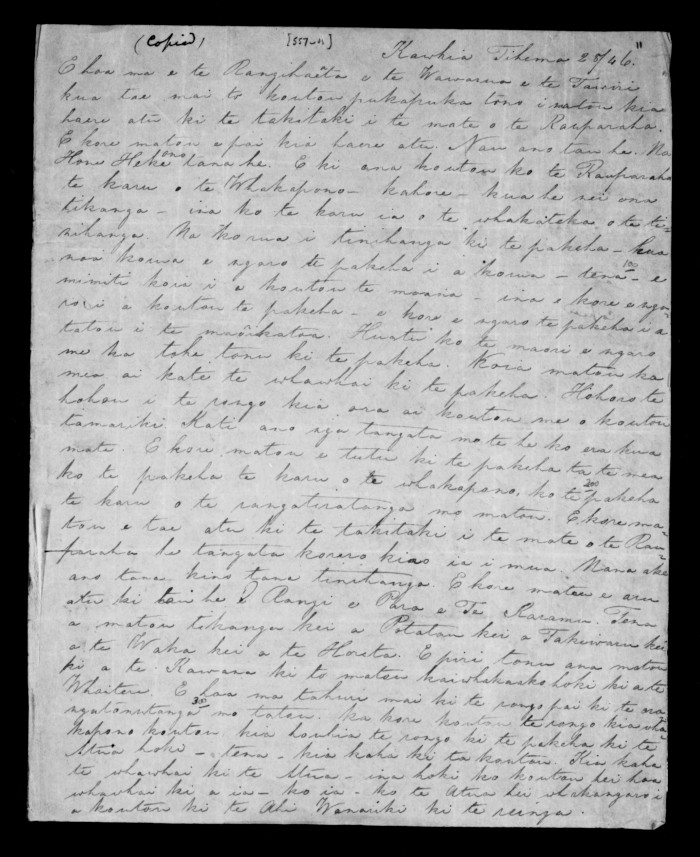 (Copied) [557-11]
Kawhia Tihema 25/46. "
E hoa ma e te Rangihaeata e te Wawarua e te
kua tae mai to koutou pukapuka tono i matou kia
haere atu ki te takitaki i te mate o te Rauparaha.
E kore matou e pai kia haere atu. Nau ano tau he. Na
Hone Heke ono tana he. E ki ana koutou ko te Rauparaha
te karu o te Whakapono - kahore - kua he nei ona
tikanga - ina ko te karu ia o te whakateka o te ti-
nihanga. Na korua i tinihanga ki te pakeha - kua
noa korua e ngaro te pakeha i a korua - tena 100 - e
mimiti koia i a koutou te moana - ina e kore e nga-
rori a koutou te pakeha - e kore e ngaro te pakeha i a
tatou i te maorikatoa. Huatu ko te maori e ngaro
me ka tohe tonu ki te pakeha. Koia matou ka
mea ai kate te whawhai ki te pakeha. Hohoro te
hohou i te rongo kia ora ai koutou me o koutou
tamariki. Kati ano nga tangata mo te he ko era kua
mate. E kore matou e tutu ki te pakeha ta te mea
ko te pakeha te karu o te whakapono, ko te 200 pakeha
te karu o te rangatiratanga mo matou. E kore ma-
tou e tae atu ki te takitaki i te mate o te Rau-
paraha he tangata korero kino ia i mua. Nana ake
ano tana kino tana tinihanga. E kore matou e aru
atu ki tou he E Rangi e Para e Te Karamu. Tena
a matou tikanga kei a Potatau kei a Takiwaru kei
a te Waka kei a te Horeta. E piri tonu ana matou
ki a te Kawana ki to matou kaiwhakaako hoki ki a te
Whaitere. E hoa ma tahuri mai ki te rongo pai ki te ora
300 mo tatou. Ka kore koutou te rongo kia wha-
kapono koutou, kia houhia te rongo ki te pakeha ki te
Atua hoki - tena - kia kaha ki ta koutou. Kia kaha
te whawhai ki te Atua - ina hoki ko koutou hei hoa
whawhai ki a ia - ko ia - ko te Atua hei whakangaro i
a koutou ki te Ahi Wanariki ki te reinga.